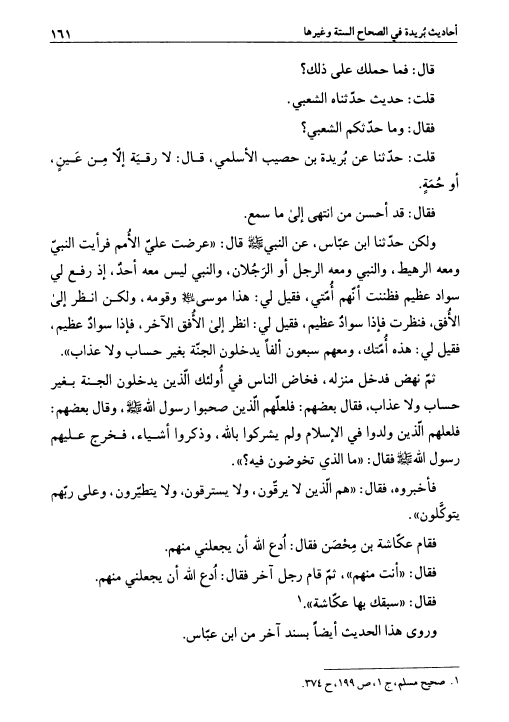 أحاديث بُريدة في الصحاح الستة وغيرها ١٦١
قال: فما حملك على ذلك؟
قلت: حديث حدّثناه الشعبي.
فقال: وما حدّثكم الشعبي؟
قلت: حدّثنا عن بُريدة بن حصيب الأسلمي، قـال: لا رقـيَة إلّا مِـن عَـينٍ،
أو حُمَةٍ.
فقال: قد أحسن من انتهى إلىٰ ما سمع.
ولكن حدّثنا ابن عبّاس، عن النبيﷺ قال: «عرضت عليّ الأُمم فرأيت النبيّ
ومعه الرهيط، والنبي ومعه الرجل أو الرَجُلان، والنبي ليس معه أحدٌ، إذ رفع لي
سواد عظيم فظننت أنّهم أُمّتي، فقيل لي: هذا موسىﷺ وقومه، ولكـن انـظر إلىٰ
الأُفق، فنظرت فإذا سوادٌ عظيم، فقيل لي: انظر إلىٰ الأُفق الآخر، فإذا سوادٌ عظيم،
فقيل لي: هذه أُمّتك، ومعهم سبعون ألفاً يدخلون الجنّة بغير حساب ولا عذاب».
ثمّ نهض فدخل منزله، فخاض الناس في أُولئك الّذين يدخلون الجـنة بـغير
حساب ولا عذاب، فقال بعضهم: فلعلّهم الّذين صحبوا رسول اللهﷺ، وقال بعضهم:
فلعلهم الّذين ولدوا في الإسلام ولم يشركوا بالله، وذكروا أشياء، فـخرج عـليهم
رسول اللهﷺ فقال: «ما الذي تخوضون فيه؟».
فأخبروه، فقال: «هم الّذين لا يرقّون، ولا يسترقون، ولا يتطيّرون، وعلى ربّهم
يتوكَّلون».
فقام عكّاشة بن مِحْصَن فقال: اُدع الله أن يجعلني منهم.
فقال: «أنت منهم»، ثمّ قام رجل آخر فقال: اُدع الله أن يجعلني منهم.
فقال: «سبقك بها عكّاشة».١
وروى هذا الحديث أيضاً بسند آخر من ابن عبّاس.
١. صحيح مسلم، ج ١، ص ١٩٩، ح ٣٧٤.